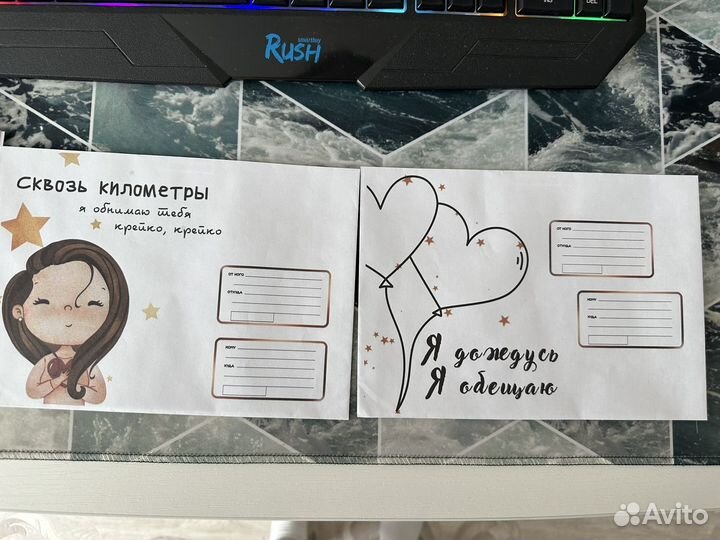 smartbuy
RUSH
INS
DEL
СКВОЗЬ КИЛОМЕТРЫ
я обнимаю тебя
крепко, крепко
ОТ КОГО
ОТКУДА
КОМУ
КУДА
ОТ КОГО
ОТКУДА
КОМУ
КУДА
Я дождусь
Я обещаю
Avito